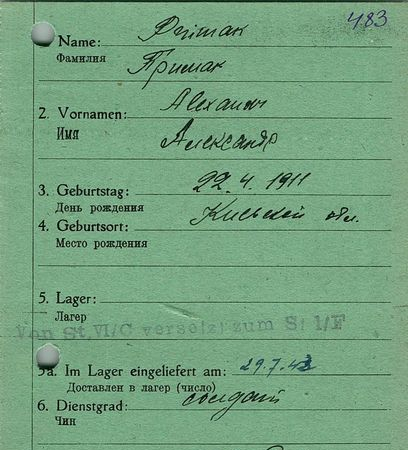 483
Name: Primak
Фамилия Примак
2. Vornamen: Alexandr
Имя Александр
3. Geburtstag: 22.4.1911
День рождения
4. Geburtsort: Киевской обл.
Место рождения
5. Lager:
Лагерь
Von St. VI/C versetzt zum St 1/F
5a. Im Lager eingeliefert am: 29.7.42
Доставлен в лагерь (число)
6. Dienstgrad: солдат
Чин